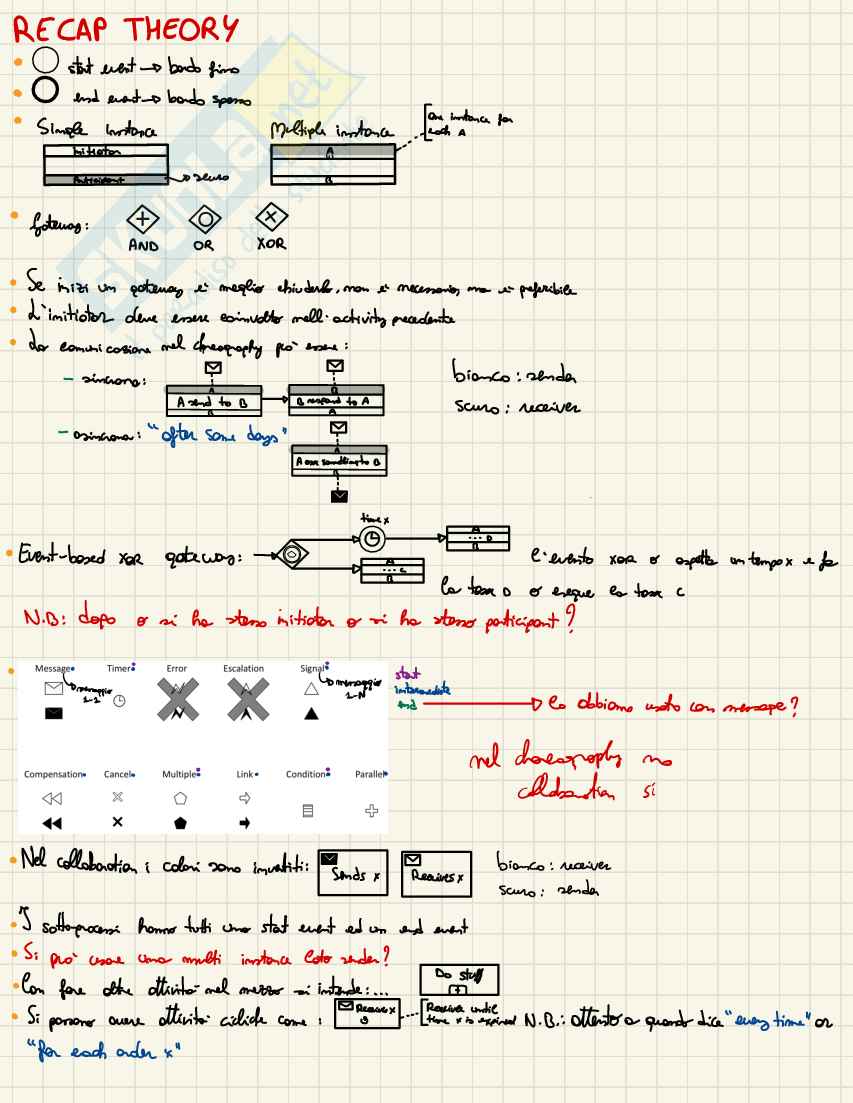 RECAP THEORY
start event → bordo fino
end event → bordo spesso
Simple instance
Multiple instance
One instance for
each A
Initiator
Participant
→ scuro
A
B
Gateway:
AND OR XOR
Se inizi un gateway è meglio chiuderlo, non è necessario, ma è preferibile
L'initiator deve essere coinvolto nell'activity precedente
La comunicazione nel choreography può essere:
- sincrona:
A
A send to B
B
B
B respond to A
A
bianco: sender
scuro: receiver
- asincrona: "after some days"
A
A ask something to B
B
Event-based XOR gateway:
time x
A
... D
B
A
... C
B
L'evento XOR o aspetta un tempo x e fa
la task D o esegue la task C
N.B: dopo o si ha stesso initiator o si ha stesso participant?
Message Timer Error Escalation Signal
→ messaggio
1-1
→ messaggio
1-N
start
intermediate
end
→ lo abbiamo usato con message?
nel choreography no
collaboration si
Compensation Cancel Multiple Link Condition Parallel
Nel collaboration i colori sono invertiti:
Sends x
Receives x
bianco: receiver
scuro: sender
I sottoprocessi hanno tutti uno start event ed un end event
Si può usare una multi instance lato sender?
Con fare altre attività nel mezzo si intende: ...
Do stuff
+
Si possono avere attività cicliche come:
Receive x
Receive until
time x is expired
N.B.: attento a quando dice "every time" or
"for each order x"
skuola.net
il paradiso dello studente